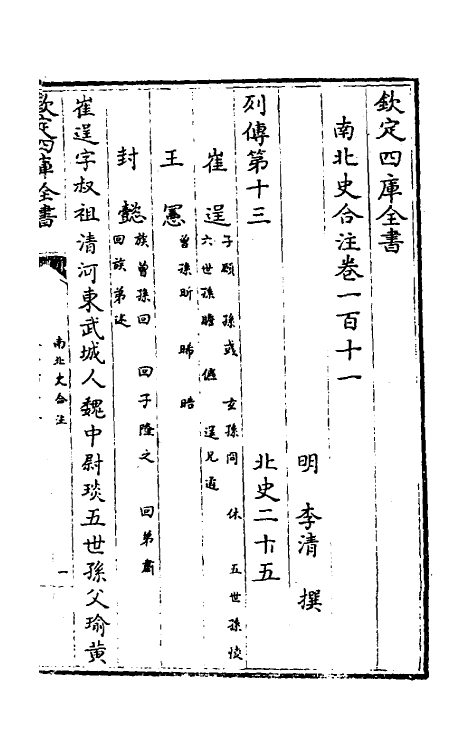 欽定四庫全書
南北史合注卷一百十一
明 李清 撰
列傳第十三
北史二十五
崔逞 子頤 孫彧 玄孫冋 休 五世孫㥄
六世孫瞻 儦 逞兄遹
王憲
曾孫昕 晞 晧
封懿 族曾孫回 回子隆之 回弟肅
回族弟述
崔逞字叔祖清河東武城人魏中尉琰五世孫父瑜黄
欽定四庫全書
南北史合注
一